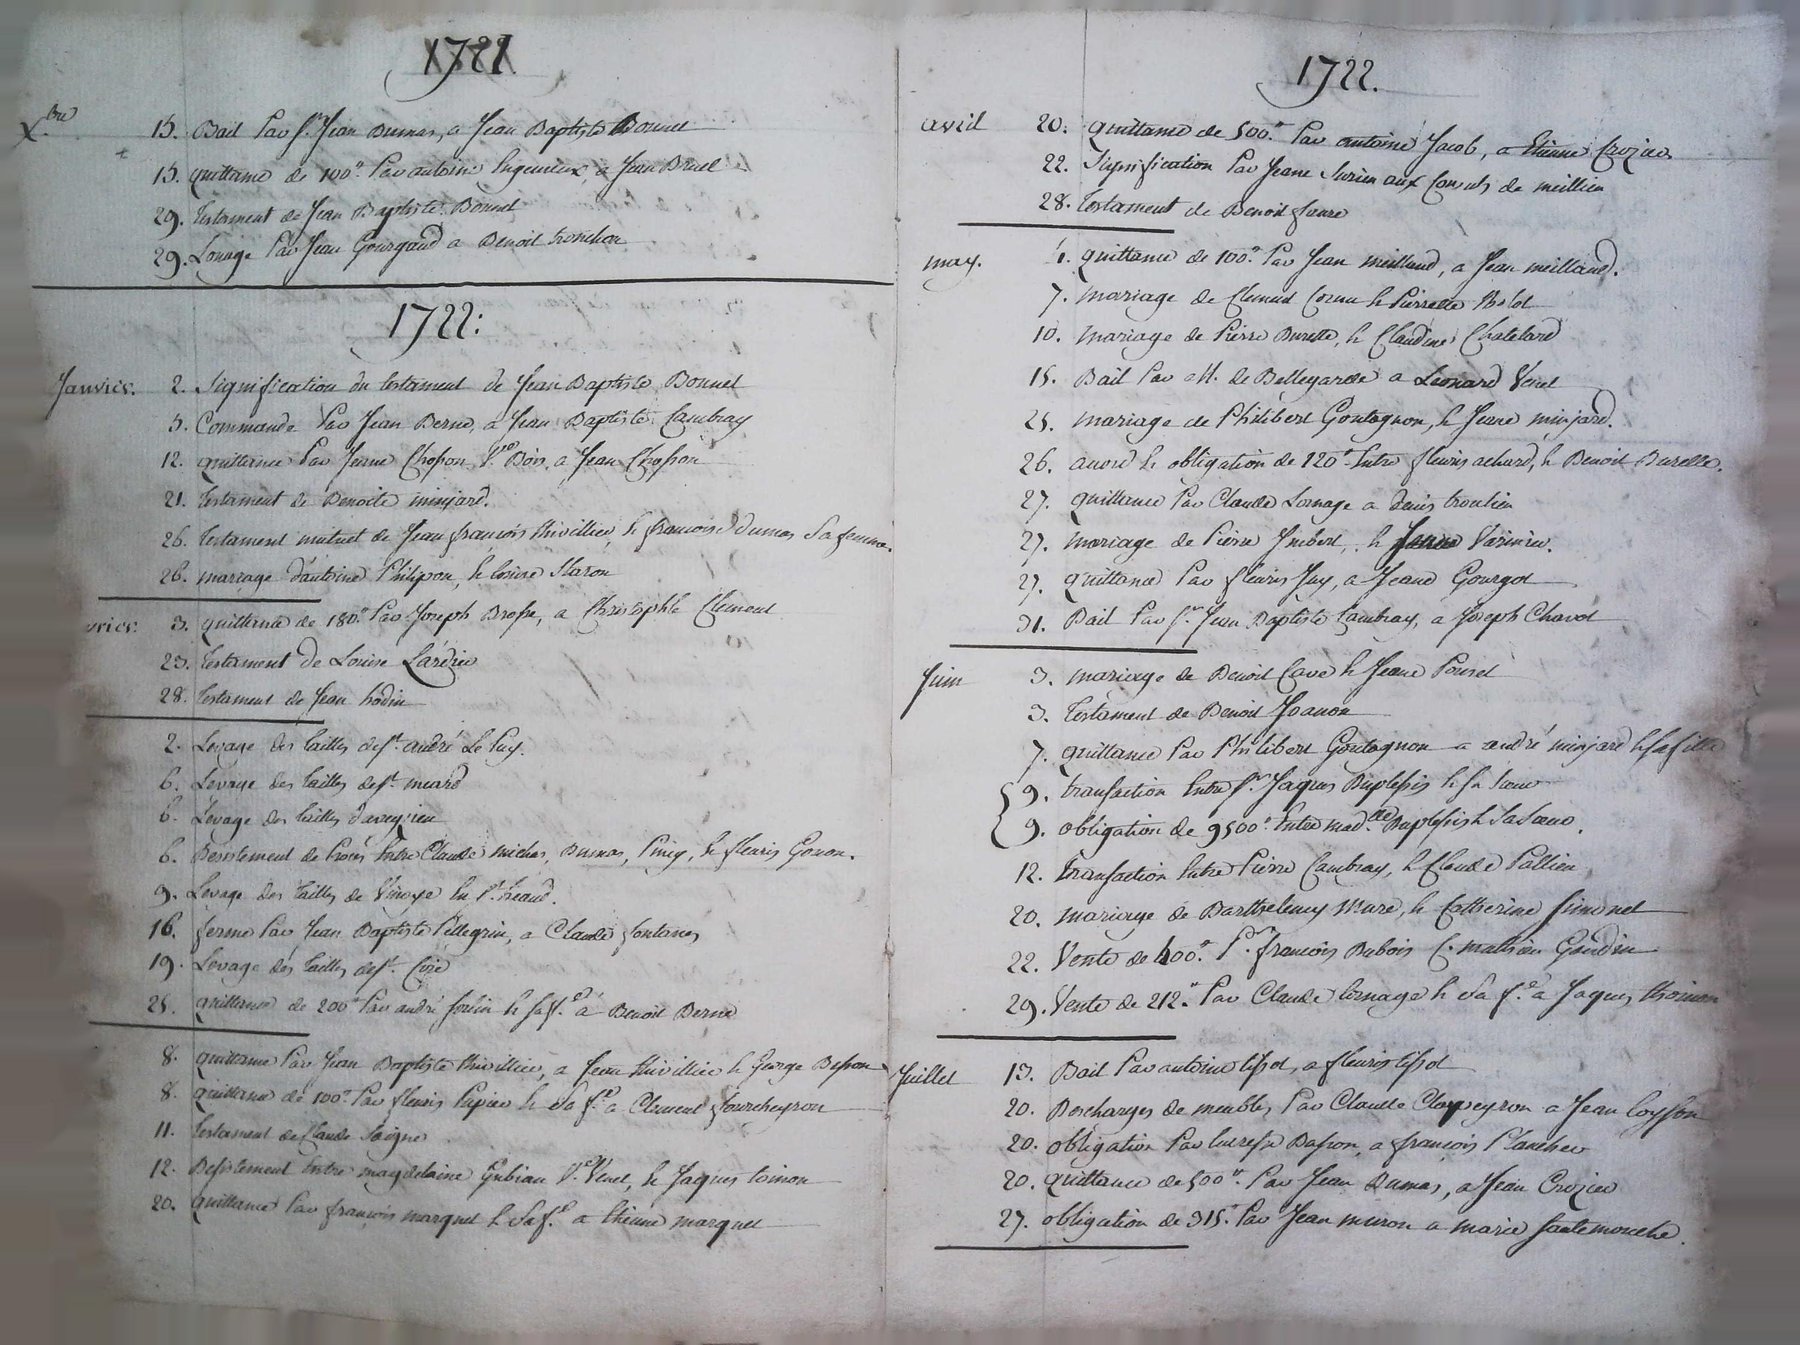 1721
Xbre 15. Bail Par Sr. Jean Dumas, a Jean Baptiste Bonnet
15. quittance de 100tt. Par antoine Ingenieux, a Jean Bruel
29. Testament de Jean Baptiste Bonnet
29. Louage Par Jean Gourgaud a Benoit tronchon
1722:
Janvier. 2. Signification du testament de Jean Baptiste Bonnet
5. Commande Par Jean Berne, a Jean Baptiste Cambray
12. quittance Par Jeanne Chosson, Ve. Bois, a Jean Chosson
21. Testament de Benoite minjard.
26. Testament mutuel de Jean françois thivillier, & françoise Dumas Sa femme.
26. mariage d'antoine Philipon, & loüise Maron
vrier. 3. quittance de 180tt. Par Joseph Brosse, a Christophle Clement
23. Testament de Louise Lardier
28. Testament de Jean hodin
2. Levage des tailles de St. andré Le Puy.
6. Levage des tailles de St. meard
6. Levage des tailles d'aveyzieu
6. Desistement de Procès Entre Claude michas, Dumas, Puig, & fleuris Gonon.
9. Levage des tailles de
16. ferme Par Jean Baptiste Pellegrin, a Claude fontanes
19. Levage des tailles de St. Cire
25. quittance de 200tt Par andré & Sa fe. a Benoit Berne
8. quittance Par Jean Baptiste thivillier, a Jean thivillier & George Besson
8. quittance de 100tt. Par fleuris Papier & Sa fe. a Clement fourcheyron
11. Testament de Claude Saigne
12. Desistement Entre magdelaine Gubian Ve. Venet, & Jaques toinon
20. quittance Par francois marquet & Sa fe. a Etienne marquet
1722.
avril 20. quittance de 500tt. Par antoine Jacob, a Etienne Crozier
22. Signification Par Jeane aux Consuls de meillieu
28. Testament de Benoit faure
may. 1. quittance de 100tt. Par Jean meilland, a Jean meilland.
7. mariage de Clement Cornu & Pierrette
10. mariage de Pierre Burette, & Claudine Chatelard
15. Bail Par M. de Bellegarde a Leonard Venet
25. mariage de Philibert Goutagnon, & Jeane minjard.
26. acord & obligation de 120tt. Entre fleuris achard, & Benoit Burelle.
27. quittance Par Claude Lornage a denis troulieu
27. mariage de Pierre Imbert, & Jeane Varinieu.
27. quittance Par fleuris Juy, a Jeane Gourgot
31. Bail Par Sr. Jean Baptiste Cambray, a Joseph Chavot
Juin 3. mariage de Benoit Cave & Jeane Poncet
3. Testament de Benoit Joanon
7. quittance Par Philibert Goutagnon a andré minjard & Sa fille
9. transaction Entre Sr. Jaques Duplessis & Sa Soeur
9. obligation de 9500tt. Entre madlle. Duplessis & Sa Soeur.
12. Transaction Entre Pierre Cambray, & Claude Pallieu
20. mariage de Barthelemy Mure, & Catherine Simonet
22. Vente de 400tt. Pr. françois Dubois C. mathieu Gondin
29. Vente de 212tt. Par Claude Lornage & Sa fe. a Jaques thoinon
Juillet 13. Bail Par antoine tissot, a fleuris tissot
20. Descharges de meubles Par Claude Clapeyron a Jean Coysson
20. obligation Par Basson, a françois Plancher
20. quittance de 500tt. Par Jean Dumas, a Jean Crozier
27. obligation de 315tt. Par Jean muron a marie Sautemouche.